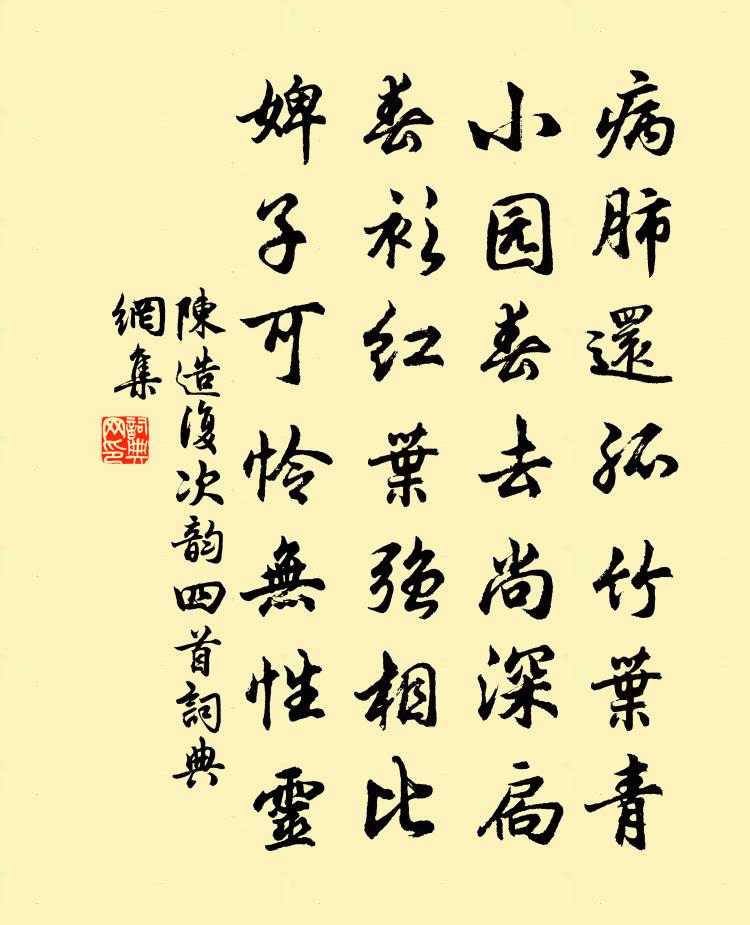 病肺還孤竹葉青
小园春去尚深扃
春衫红葉強相比
婢子可怜無性靈
陳造復次韵四首詞典
網集
詞典
网印